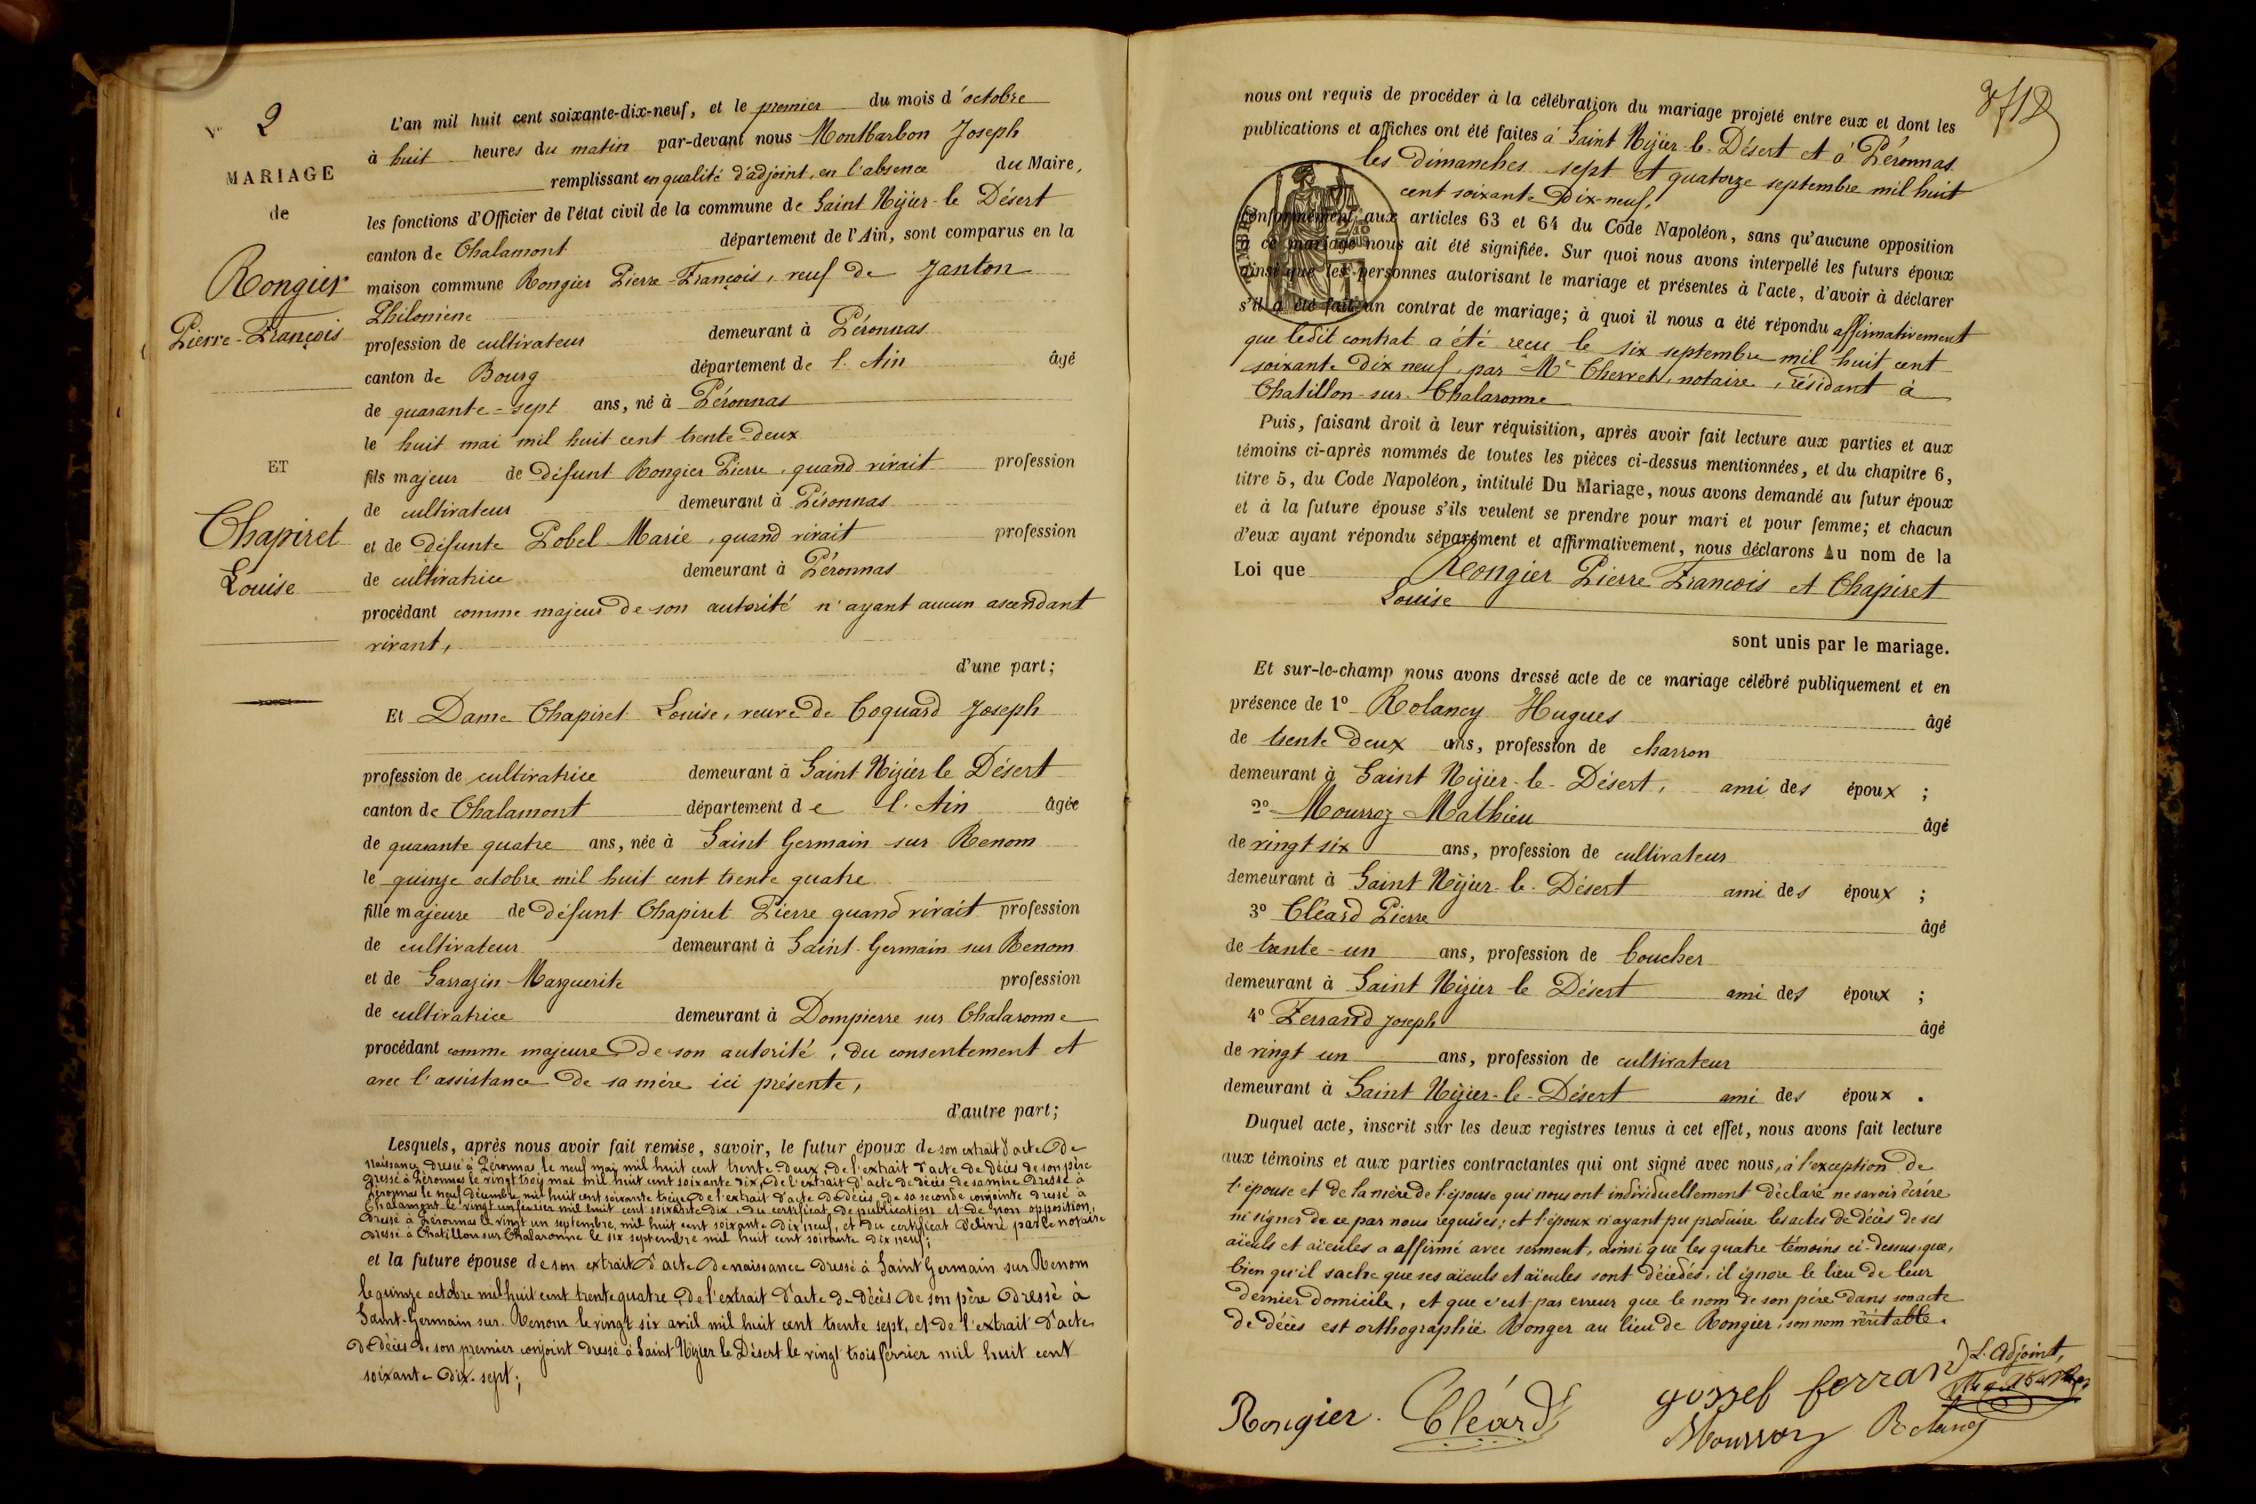 N° 2
MARIAGE
de
Rongier
Pierre-François
ET
Chapiret
Louise
L'an mil huit cent soixante-dix-neuf, et le premier du mois d'octobre
à huit heures du matin par-devant nous Montbarbon Joseph
remplissant en qualité d'adjoint, en l'absence du Maire,
les fonctions d'Officier de l'état civil de la commune de Saint Nizier-le Désert
canton de Chalamont département de l'Ain, sont comparus en la
maison commune Rongier Pierre-François, veuf de Janton
Philomène
profession de cultivateur demeurant à Péronnas
canton de Bourg département de l'Ain âgé
de quarante-sept ans, né à Péronnas
le huit mai mil huit cent trente-deux
fils majeur de défunt Rongier Pierre, quand vivait profession
de cultivateur demeurant à Péronnas
et de défunte Pobel Marie, quand vivait profession
de cultivatrice demeurant à Péronnas
procédant comme majeur de son autorité n'ayant aucun ascendant
vivant,
d'une part;
Et Dame Chapiret Louise, veuve de Coquard Joseph
profession de cultivatrice demeurant à Saint Nizier le Désert
canton de Chalamont département de l'Ain âgée
de quarante quatre ans, née à Saint Germain sur Renom
le quinze octobre mil huit cent trente quatre
fille majeure de défunt Chapiret Pierre quand vivait profession
de cultivateur demeurant à Saint-Germain sur Renom
et de Sarrazin Marguerite profession
de cultivatrice demeurant à Dompierre sur Chalaronne
procédant comme majeure de son autorité, du consentement et
avec l'assistance de sa mère ici présente,
d'autre part;
Lesquels, après nous avoir fait remise, savoir, le futur époux de son extrait d'acte de
naissance dressé à Péronnas le neuf mai mil huit cent trente deux, de l'extrait d'acte de décès de son père
dressé à Péronnas le vingt trois mai mil huit cent soixante dix, de l'extrait d'acte de décès de sa mère dressé à
Péronnas le neuf décembre mil huit cent soixante treize, de l'extrait d'acte de décès de sa seconde conjointe dressé à
Chalamont le vingt un février mil huit cent soixante dix, du certificat de publication et de non opposition,
dressé à Péronnas le vingt un septembre, mil huit cent soixante dix neuf, et du certificat délivré par le notaire
dressé à Chatillon sur Chalaronne le six septembre mil huit cent soixante dix neuf;
et la future épouse de son extrait d'acte de naissance dressé à Saint Germain sur Renom
le quinze octobre mil huit cent trente quatre, de l'extrait d'acte de décès de son père dressé à
Saint-Germain sur Renom le vingt six avril mil huit cent trente sept, et de l'extrait d'acte
de décès de son premier conjoint dressé à Saint Nizier le Désert le vingt trois février mil huit cent
soixante dix-sept;
nous ont requis de procéder à la célébration du mariage projeté entre eux et dont les
publications et affiches ont été faites à Saint Nizier-le-Désert et à Péronnas
les dimanches sept et quatorze septembre mil huit
cent soixante Dix-neuf,
conformément aux articles 63 et 64 du Code Napoléon, sans qu'aucune opposition
à ce mariage nous ait été signifiée. Sur quoi nous avons interpellé les futurs époux
ainsi que les personnes autorisant le mariage et présentes à l'acte, d'avoir à déclarer
s'il a été fait un contrat de mariage; à quoi il nous a été répondu affirmativement
que ledit contrat a été reçu le six septembre mil huit cent
soixante dix neuf, par Me Chervet, notaire, résidant à
Chatillon-sur-Chalaronne
Puis, faisant droit à leur réquisition, après avoir fait lecture aux parties et aux
témoins ci-après nommés de toutes les pièces ci-dessus mentionnées, et du chapitre 6,
titre 5, du Code Napoléon, intitulé Du Mariage, nous avons demandé au futur époux
et à la future épouse s'ils veulent se prendre pour mari et pour femme; et chacun
d'eux ayant répondu séparément et affirmativement, nous déclarons Au nom de la
Loi que Rongier Pierre François et Chapiret
Louise
sont unis par le mariage.
Et sur-le-champ nous avons dressé acte de ce mariage célébré publiquement et en
présence de 1° Rolancy Hugues âgé
de trente deux ans, profession de charron
demeurant à Saint Nizier-le-Désert, ami des époux ;
2° Mourroz Mathieu âgé
de vingt six ans, profession de cultivateur
demeurant à Saint Nizier-le-Désert ami des époux ;
3° Cléard Pierre âgé
de trente-un ans, profession de boucher
demeurant à Saint Nizier le Désert ami des époux ;
4° Ferrand Joseph âgé
de vingt un ans, profession de cultivateur
demeurant à Saint Nizier-le-Désert ami des époux .
Duquel acte, inscrit sur les deux registres tenus à cet effet, nous avons fait lecture
aux témoins et aux parties contractantes qui ont signé avec nous, à l'exception de
l'épouse et de la mère de l'épouse qui nous ont individuellement déclaré ne savoir écrire
ni signer de ce par nous requises; et l'époux n'ayant pu produire les actes de décès de ses
aïeuls et aïeules a affirmé avec serment, ainsi que les quatre témoins ci-dessus, que,
bien qu'il sache que ses aïeuls et aïeules sont décédés, il ignore le lieu de leur
dernier domicile, et que c'est par erreur que le nom de son père dans son acte
de décès est orthographié Ronger au lieu de Rongier, son nom véritable.
L'Adjoint,
Rongier. Cléard Jossef ferrand
Mourroz Rolancy